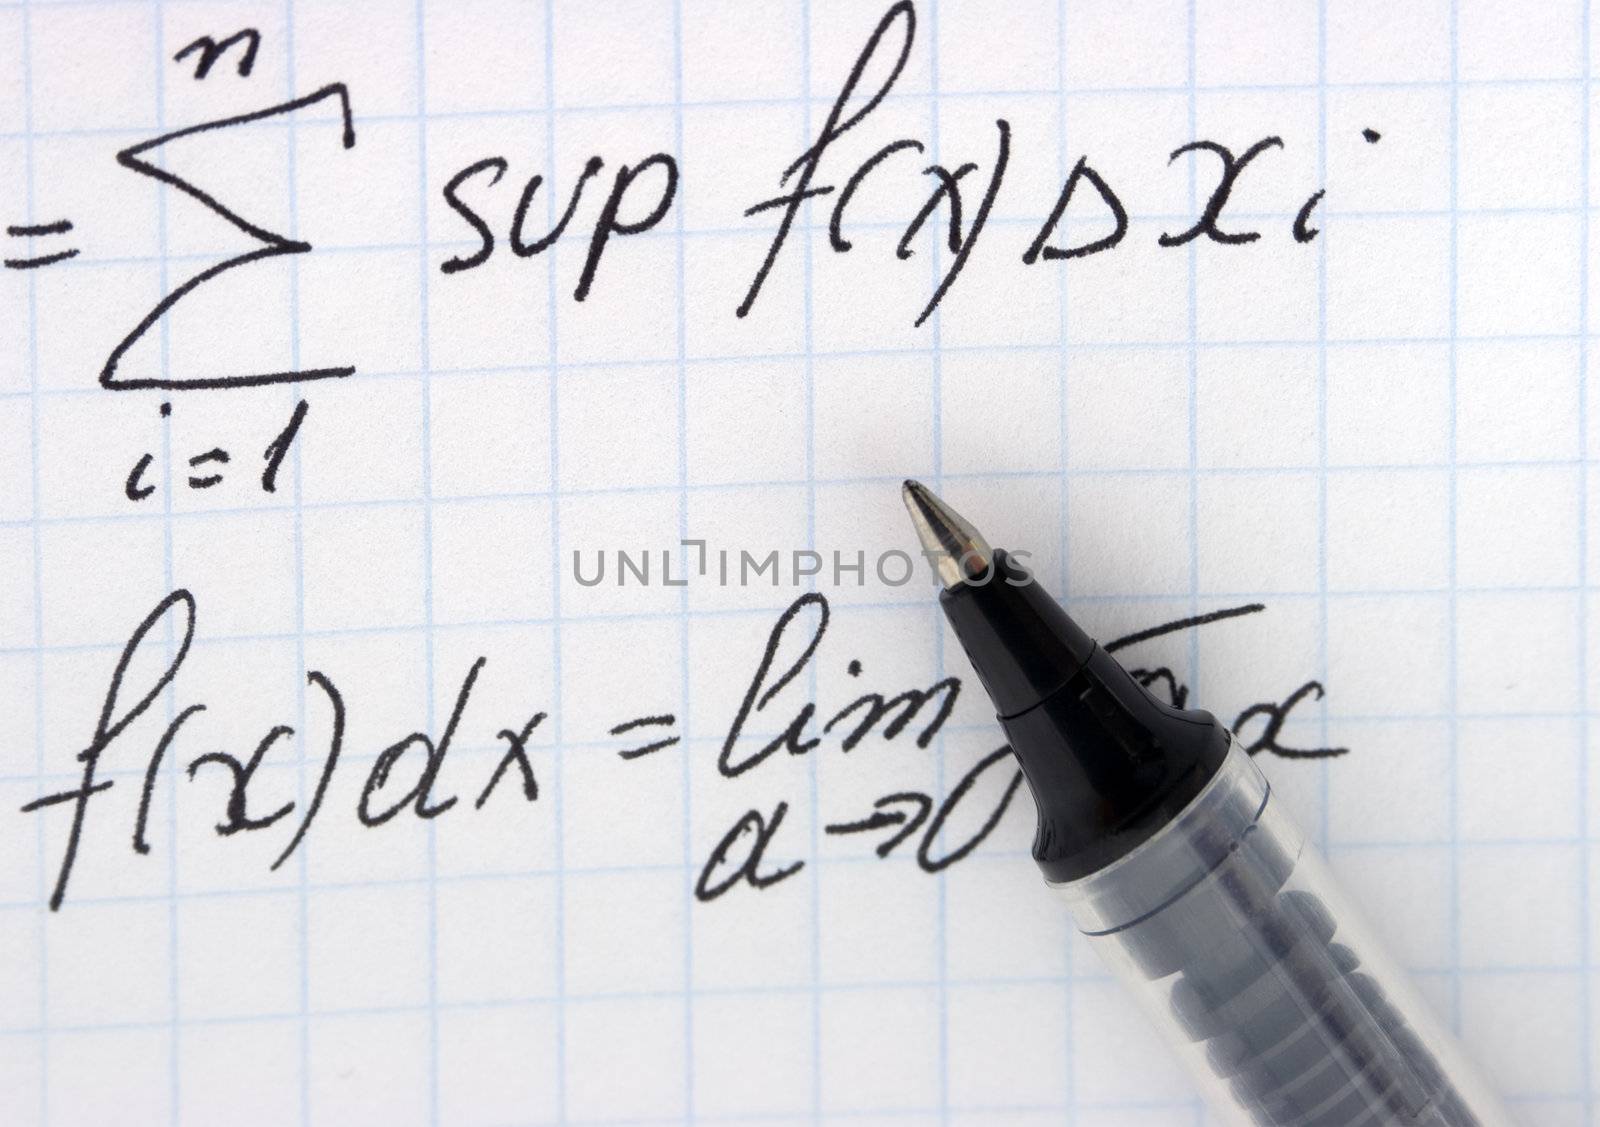 n
= ∑ sup f(x) Δ x i
i=1
UNLIMPHOTOS
f(x)dx = lim x
a→0